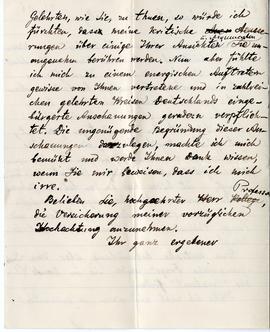 Gelehrten, wie die, zu thuen, so würde ich
fürchten, dass meine kritische Aeusse-
rungen über einige Ihrer Ansichten Sie un-
angenehm berühren werden. Nun aber fühlte
ich mich zu einem energischen Auftreten
gewisse von Ihnen vertretene und in zahlrei-
chen gelehrten Kreisen Deutschlands einge-
bürgerte Anschauungen geradezu verpflich-
tet. Die ungenügende Begründung dieser An-
schauungen darzulegen, machte ich mich
bemüht und werde Ihnen Dank wissen,
wenn Sie mir beweisen, dass ich mich
irre.
Belieben Sie, hochgeehrter Herr Professor
die Versicherung meiner vorzüglichen
Hochachtung anzunehmen.
Ihr ganz ergebener